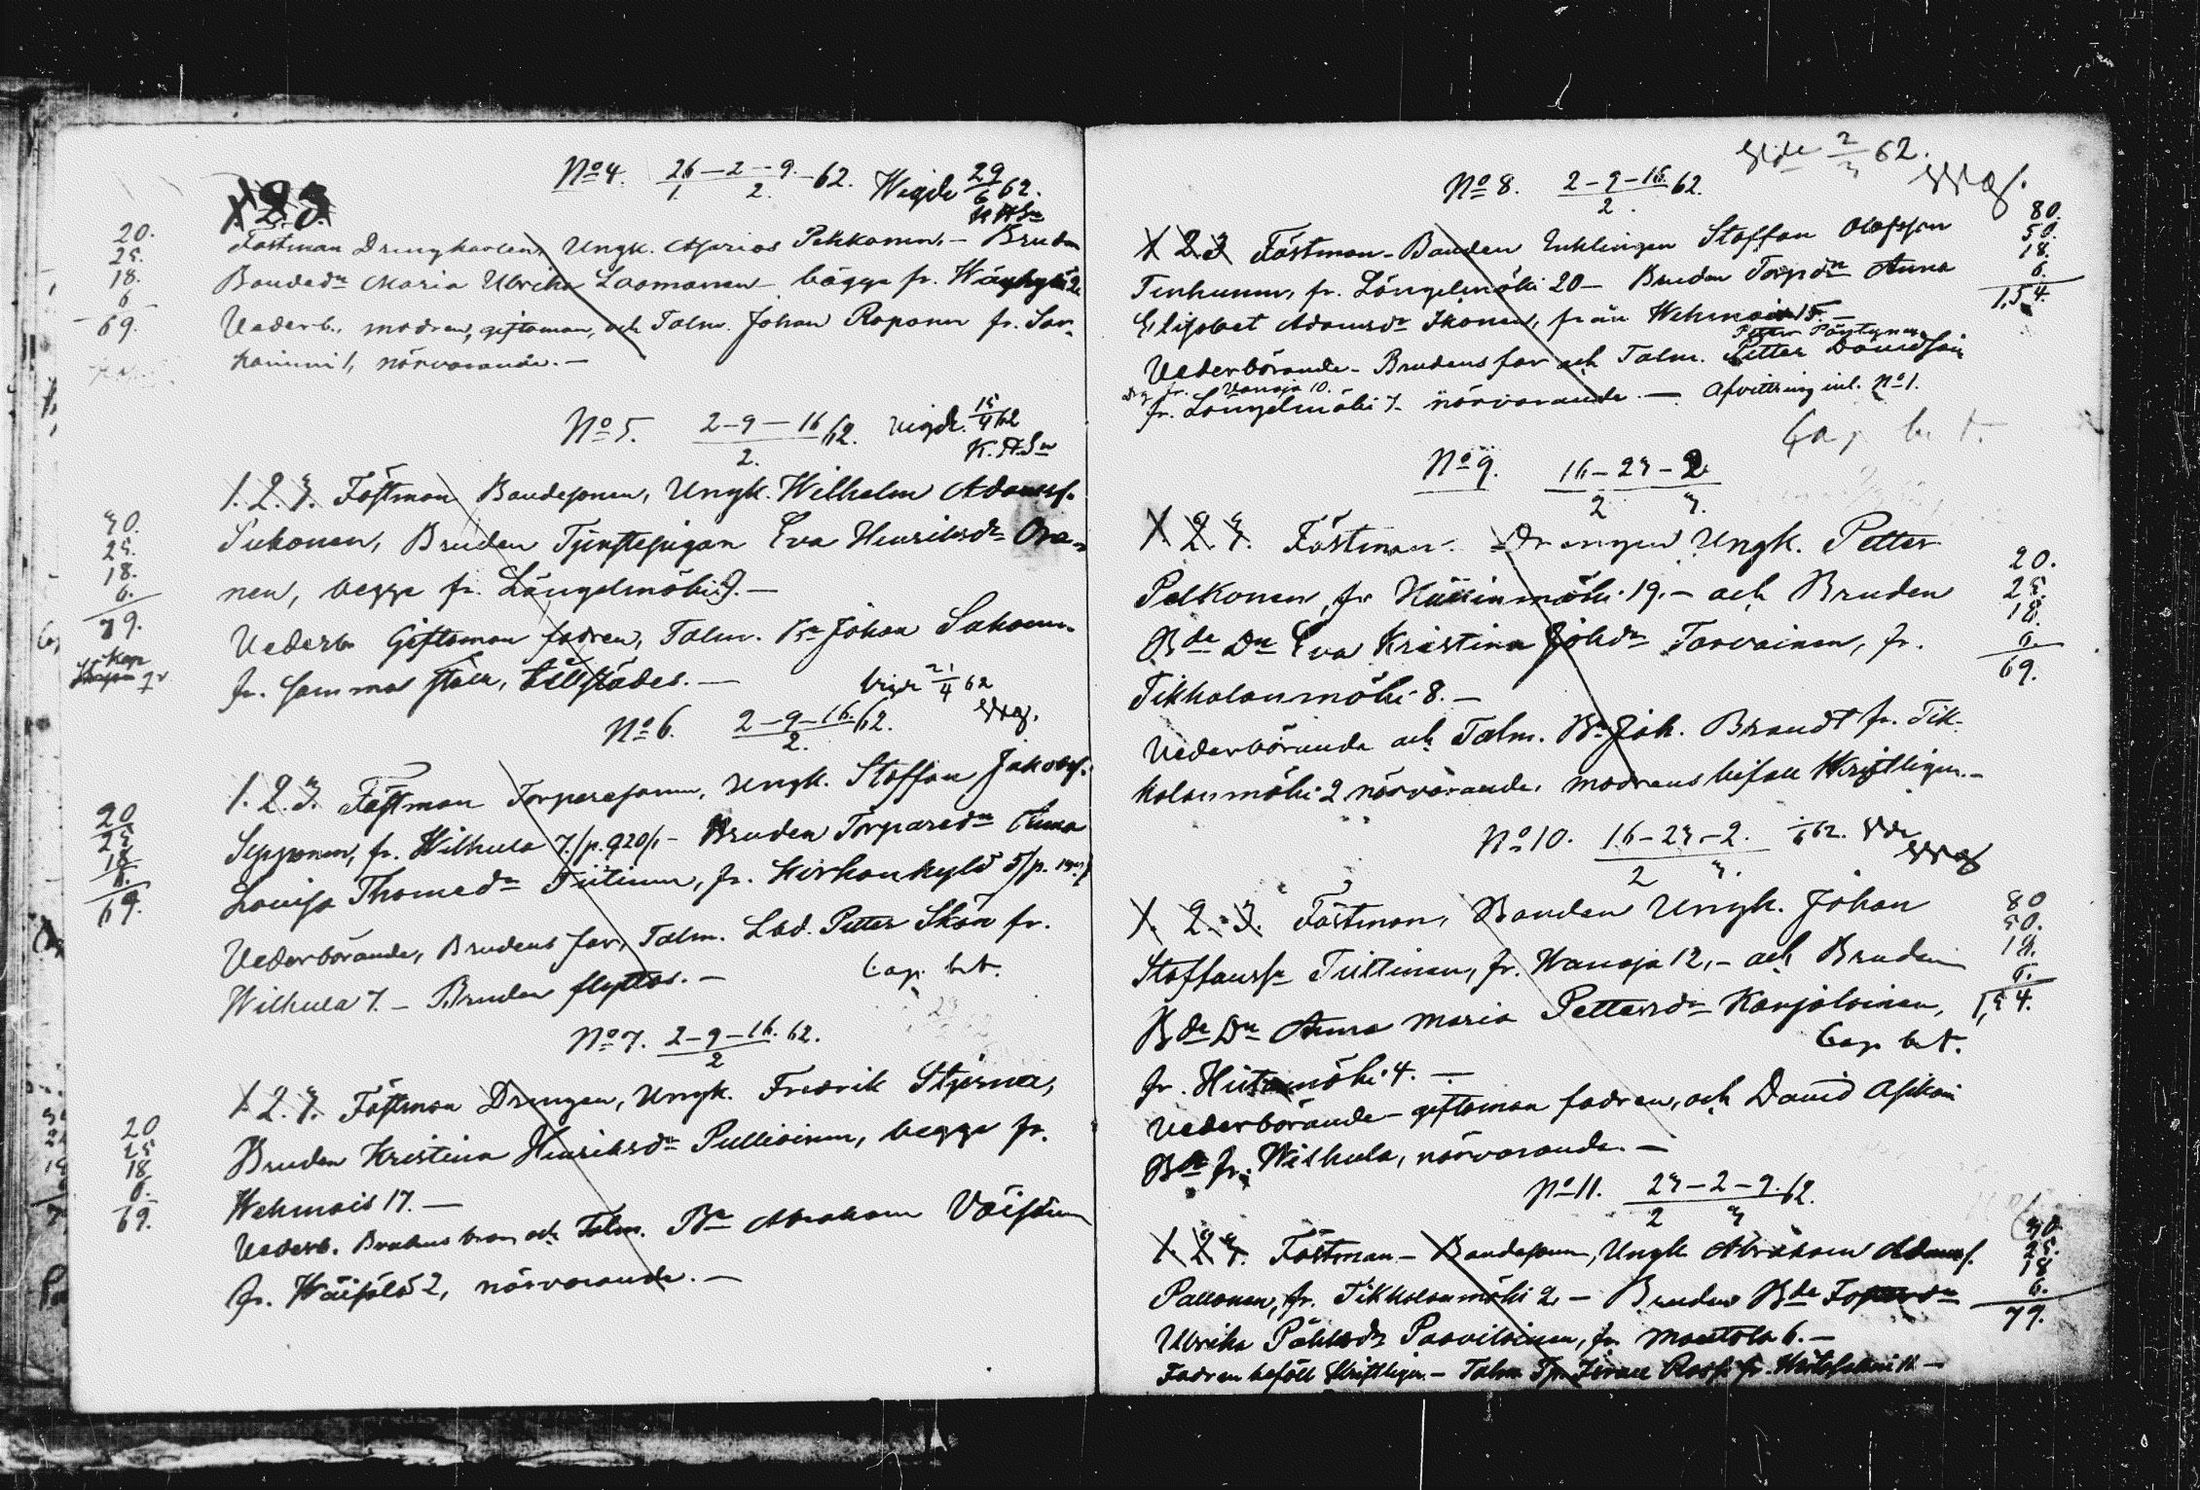 No 4. 26–2–9. 62. Wigde 29/6 62.
1. 2.
1 2 3
Fästman Drengkarlen, Ungk. Pekkonen, – Bruden
Bondedr Maria Ulrika Laamanen bägge fr.
Vederb. modren, giftoman, och Talm. Johan Raponen fr.
1, närvarande. –
20.
25.
18.
6
69.
No 5. 2–9–16 62. vigde 15/4 62
2.
1. 2. 3. Fästman Bondesonen, Ungk. Wilhelm Adamss.
Bruden Tjenstepigan Eva Henriksdr
nen, begge fr. Längelmäki 9. –
Vederb Giftoman fadren, Talm. Bn Johan
fr. samma
30.
25.
18.
6.
79.
Kap
vigde 21/4 62
No 6. 2–9–16. 62.
2.
1. 2. 3. Fästman Torparesonen, Ungk. Staffan Jakobss.
Sepponen, fr. Wilhula 7. /p. 920/. – Bruden Torparedn Anna
Lovisa Thomasdr fr. Kirkonkylä 5 /p.
Vederbörande, Brudens far, Talm. Petter Skön fr.
Wilhula 7. – Bruden flyttas. – Cap. bet.
20
25
18
6.
69.
No 7. 2–9–16. 62.
2
1. 2. 3. Fästman Drengen, Ungk. Fredrik Stjerna,
Bruden Kristina Henriksdr Pulliainen, begge fr.
Wehmais 17. –
Vederb. Brudens bror och Talm. Bn Abraham Väisänen
fr. 2, närvarande. –
20
25
18
6.
69.
62.
No 8. 2–9–16. 62.
2.
1 2 3 Fästman – Bonden Enklingen Staffan Olofsson
Tenhunen, fr. Längelmäki 20 – Bruden Torpdn Anna
Elisabet Adamsdr Ikonen, från Wehmais 15. –
Vederbörande – Brudens far och Talm. Petter
Vanaja 10.
fr. Längelmäki 7 närvarande. — Afvittring inl. No 1.
Cap bet.
80.
50.
18.
6.
1,54.
No 9. 16–23–2
2 3.
1. 2. 3. Fästman – Drengen Ungk. Petter
Pelkonen, fr 19. – och Bruden
Bde Dn Eva Kristina Johdr Tarvainen, fr.
Tikkalanmäki 8. –
Vederbörande och Talm. Bn Joh. Brandt fr. Tik-
kalanmäki 2 närvarande. modrens bifall skriftligen. –
20.
25.
18.
6.
69.
No 10. 16–23–2. 62.
2 3.
1. 2. 3. Fästman, Bonden Ungk. Johan
Staffanss Tiittinen, fr. Wanaja 12, – och Bruden
Bde Dn Anna Maria Pettersdr Karjalainen,
Cap bet.
fr. 4. –
Vederbörande – giftoman fadren, och David Asikain
Bn fr. Wilhula, närvarande. –
80
50.
18.
6.
1,54.
No 11. 23–2–9. 62.
2 3
1. 2. 3. Fästman – Bondesonen, Ungk Abraham Adamss.
fr. Tikkalanmäki 2. – Bruden Bde
Ulrika Paavilainen, fr. Mantola 6. –
Fadren bifall skriftligen. – Talm.
30.
25.
18
6.
79.